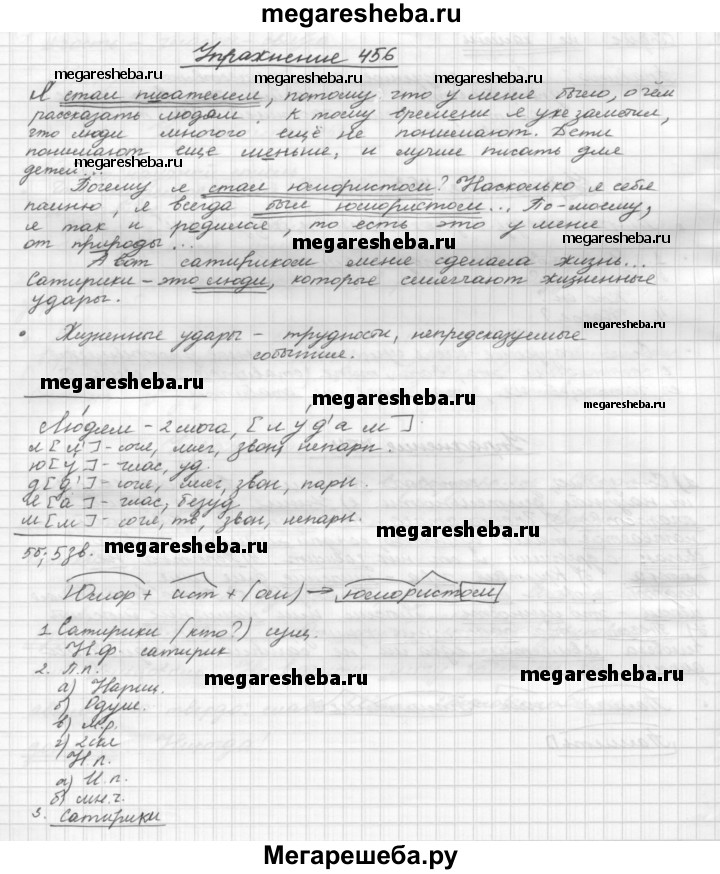 megaresheba.ru
Упражнение 456
megaresheba.ru megaresheba.ru megaresheba.ru
Я стал писателем, потому что у меня было, о чём
рассказать людям. К тому времени я уже заметил,
что люди многого ещё не понимают. Дети
понимают ещё меньше, и лучше писать для
детей...
megaresheba.ru megaresheba.ru
Почему я стал юмористом? Насколько я себя
помню, я всегда был юмористом... По-моему,
я так и родился, то есть это у меня
от природы...
megaresheba.ru megaresheba.ru
А вот сатириком меня сделала жизнь...
Сатирики - это люди, которые смягчают жизненные
удары.
• Жизненные удары - трудности, непредсказуемые
события.
megaresheba.ru
megaresheba.ru megaresheba.ru
megaresheba.ru
Людям - 2 слога, [л'уд'ам].
л [л'] - согл, мяг, звон, непарн.
ю [у] - глас, уд.
д [д'] - согл, мяг, звон, парн.
я [а] - глас, безуд.
м [м] - согл, тв, звон, непарн.
5б; 5зв.
megaresheba.ru megaresheba.ru
Юмор + ист + (ом) → юмористом
1. Сатирики (кто?) сущ.
Н.ф. сатирик
2. П.п.
а) Нариц.
б) Одуш.
в) м.р.
г) 2 скл
Н.п.
а) И.п.
б) мн.ч.
3. Сатирики
megaresheba.ru megaresheba.ru
megaresheba.ru megaresheba.ru
Мегарешеба.ру